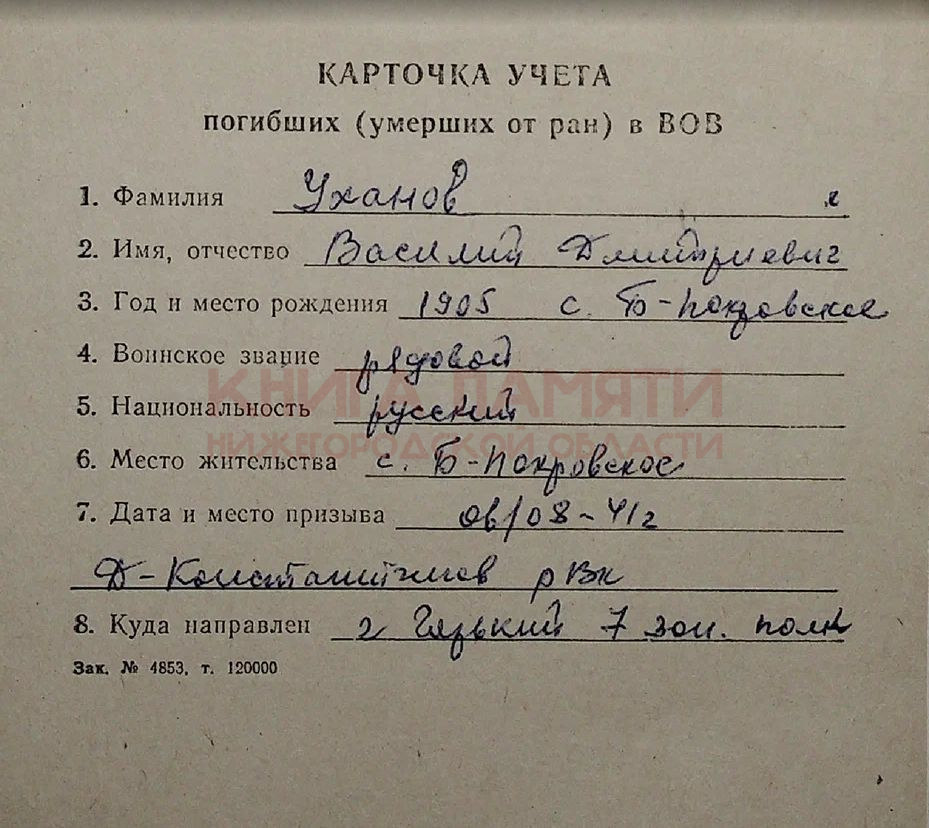 КАРТОЧКА УЧЕТА
погибших (умерших от ран) в ВОВ
1. Фамилия Уханов
2. Имя, отчество Василий Дмитриевич
3. Год и место рождения 1905 с. Б-Покровское
4. Воинское звание рядовой
КНИГА ПАМЯТИ
5. Национальность русский
НИЖЕГОРОДСКОЙ ОБЛАСТИ
6. Место жительства с. Б-Покровское
7. Дата и место призыва 06/08-41г
Д-Константинов рвк
8. Куда направлен г Горький 7 зен. полк
Зак. № 4853, т. 120000